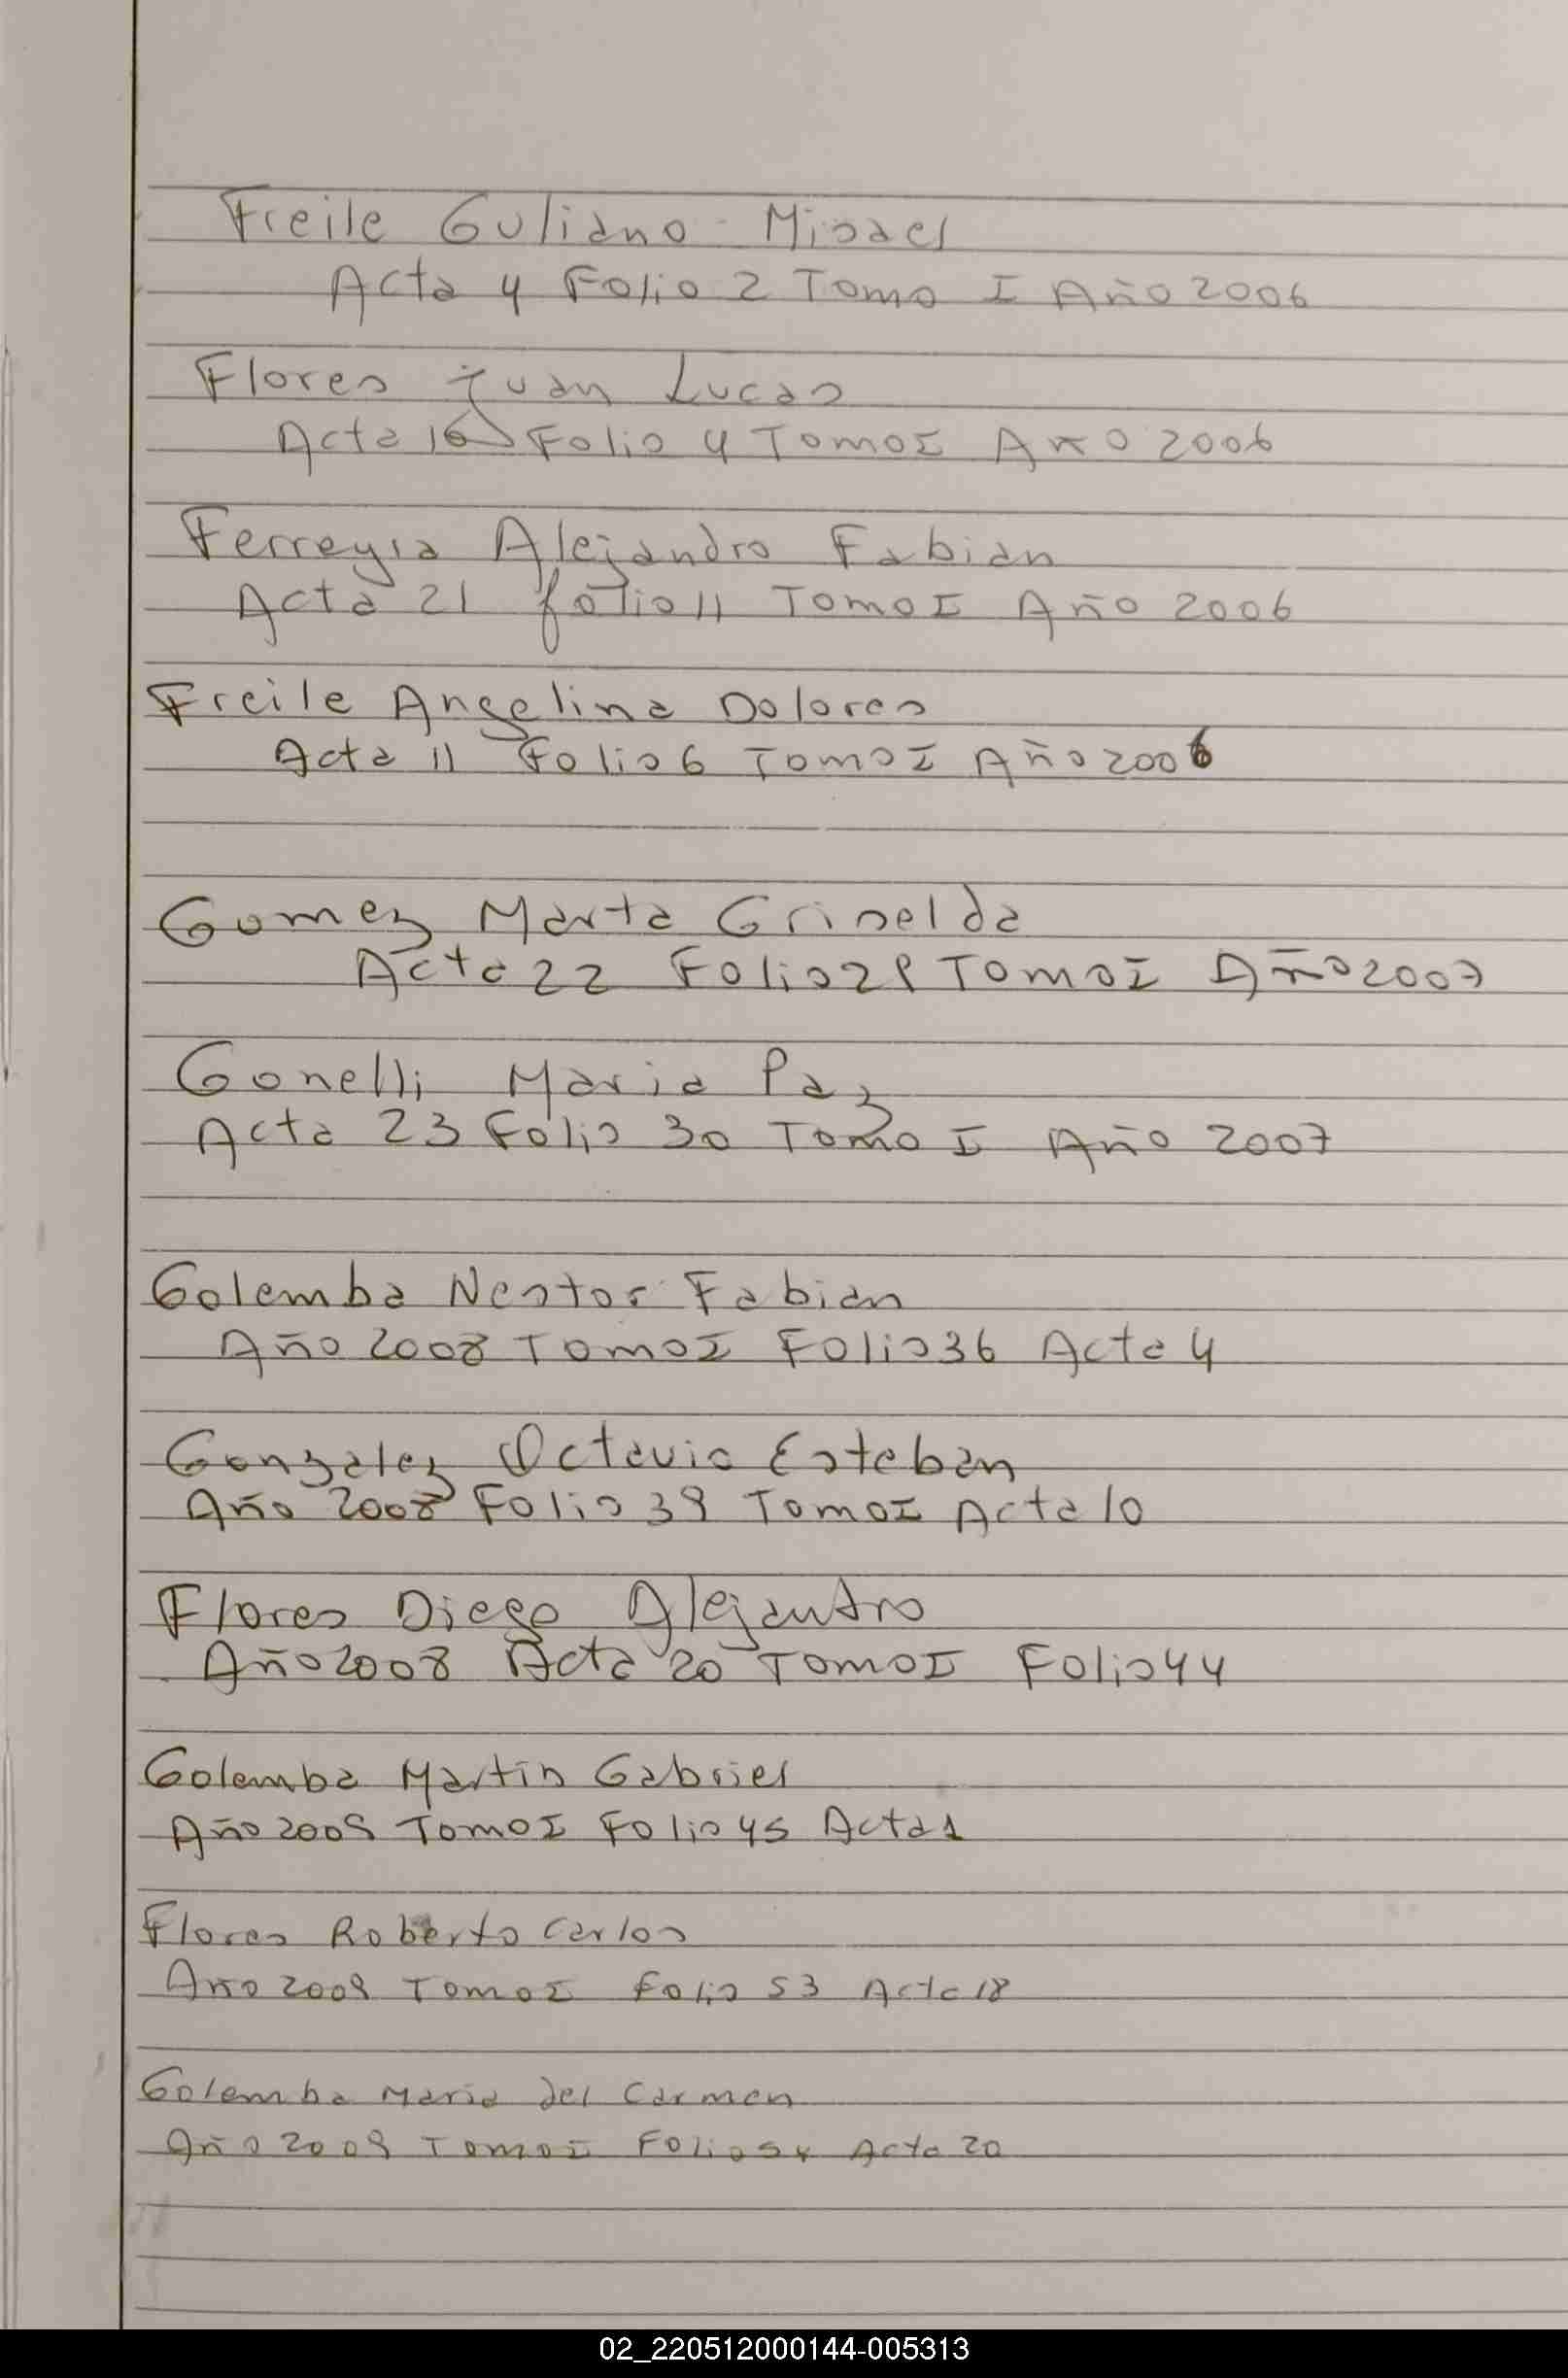 Freile Guliano Misael
Acta 4 Folio 2 Tomo I Año 2006
Flores Juan Lucas
Acta 16 Folio 4 Tomo I Año 2006
Ferreyra Alejandro Fabian
Acta 21 folio 11 Tomo I Año 2006
Freile Angelina Dolores
Acta 11 Folio 6 Tomo I Año 2006
Gomez Marta Griselda
Acta 22 Folio 29 Tomo I Año 2007
Gonelli Maria Paz
Acta 23 Folio 30 Tomo I Año 2007
Golemba Nestor Fabian
Año 2008 Tomo I Folio 36 Acta 4
Gonzalez Octavio Esteban
Año 2008 Folio 39 Tomo I Acta 10
Flores Diego Alejandro
Año 2008 Acta 20 Tomo I Folio 44
Golemba Martin Gabriel
Año 2009 Tomo I Folio 45 Acta 1
Flores Roberto Carlos
Año 2009 Tomo I Folio 53 Acta 18
Golemba Maria del Carmen
Año 2009 Tomo I Folio 54 Acta 20
02_220512000144-005313